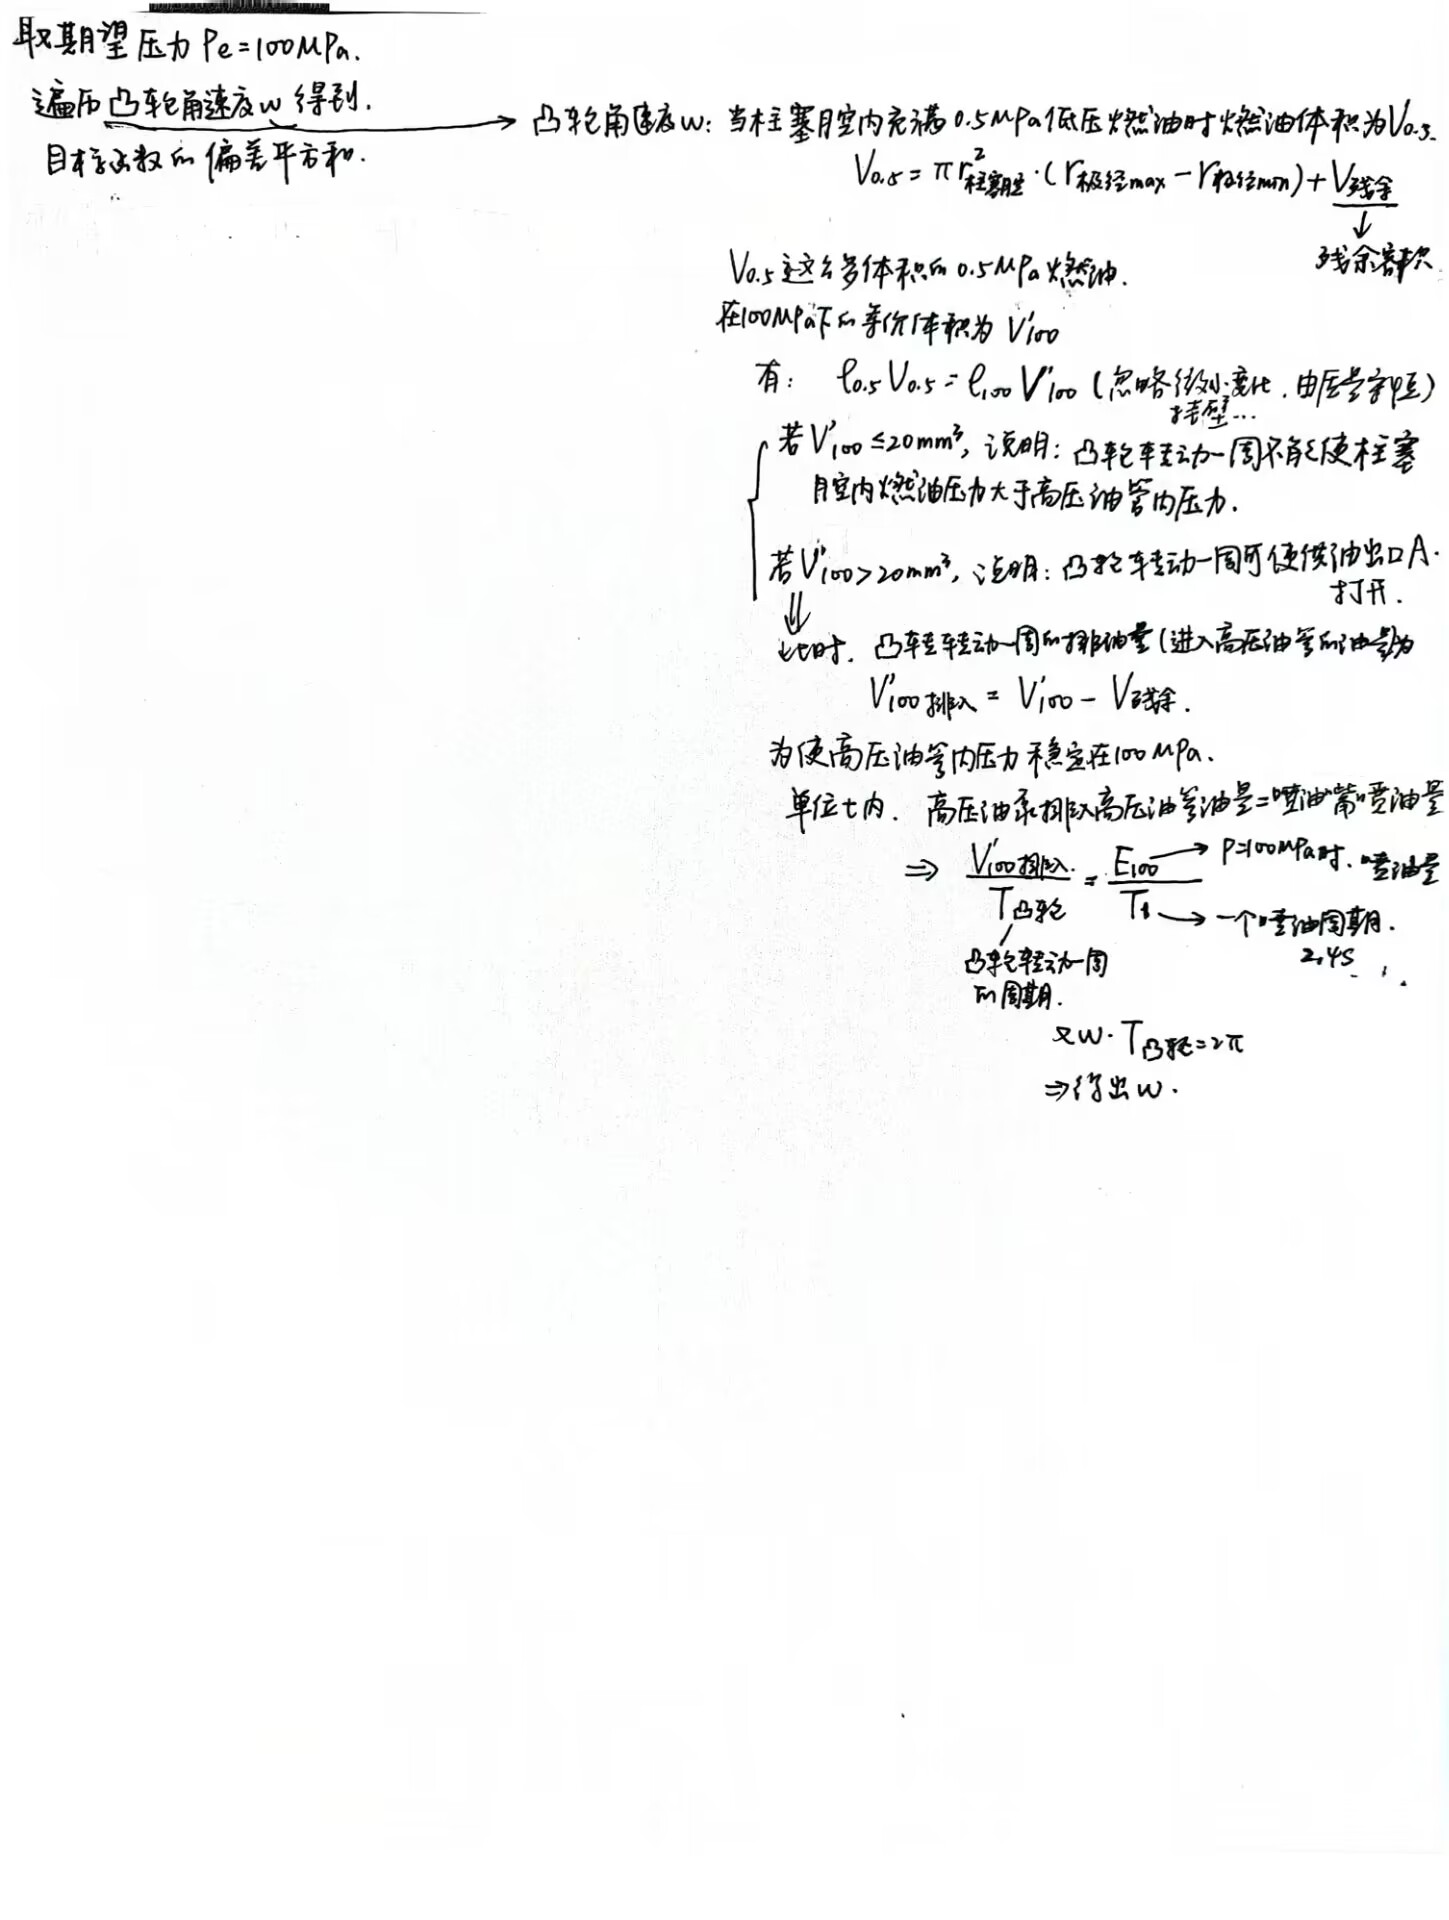 取期望压力 Pe=100MPa.
遍历凸轮角速度w 得到.
目标函数的偏差平方和.
凸轮角速度w: 当柱塞腔内充满0.5MPa低压燃油时燃油体积为V0.5.
V0.5 = πr²柱塞腔·(r极径max - r极径min) + V残余
残余容积
V0.5这么多体积的0.5MPa燃油.
在100MPa下的等价体积为 V'100
有: ρ0.5 V0.5 = ρ100 V'100 (忽略微小变化. 由质量守恒)
挂壁...
若V'100≤20mm³, 说明: 凸轮转动一周不能使柱塞
腔内燃油压力大于高压油管内压力.
若V'100>20mm³, 说明: 凸轮转动一周可使供油出口A.
打开.
⇓
此时. 凸轮转动一周的排油量(进入高压油管的油量)为
V'100排入 = V'100 - V残余.
为使高压油管内压力稳定在100MPa.
单位t内. 高压油泵排入高压油管油量=喷油嘴喷油量
⇒ V'100排入/T凸轮 = E100/T1
P=100MPa时. 喷油量
一个喷油周期.
2.4s
凸轮转动一周
的周期.
又w·T凸轮=2π
⇒得出w.